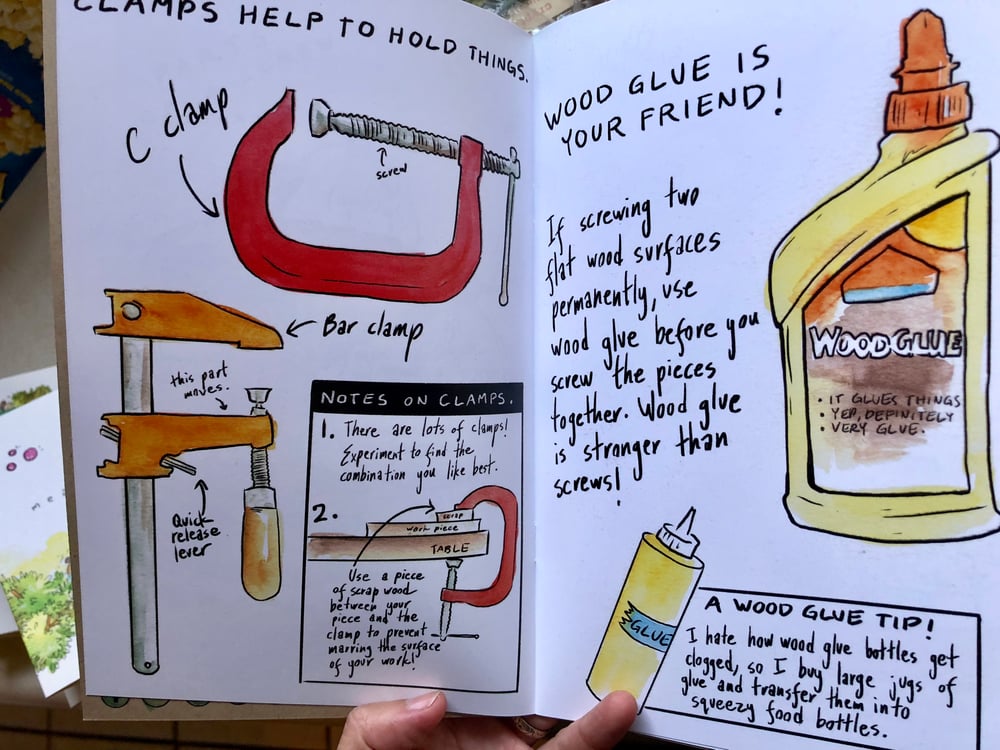 CLAMPS HELP TO HOLD THINGS.
C clamp
screw
Bar clamp
this part
moves.
Quick
release
lever
NOTES ON CLAMPS.
1. There are lots of clamps!
Experiment to find the
combination you like best.
2.
scrap
work piece
TABLE
Use a piece
of scrap wood
between your
piece and the
clamp to prevent
marring the surface
of your work!
WOOD GLUE IS
YOUR FRIEND!
If screwing two
flat wood surfaces
permanently, use
wood glue before you
screw the pieces
together. Wood glue
is stronger than
screws!
WOOD GLUE
• IT GLUES THINGS
• YEP, DEFINITELY
• VERY GLUE.
GLUE
A WOOD GLUE TIP!
I hate how wood glue bottles get
clogged, so I buy large jugs of
glue and transfer them into
squeezy food bottles.